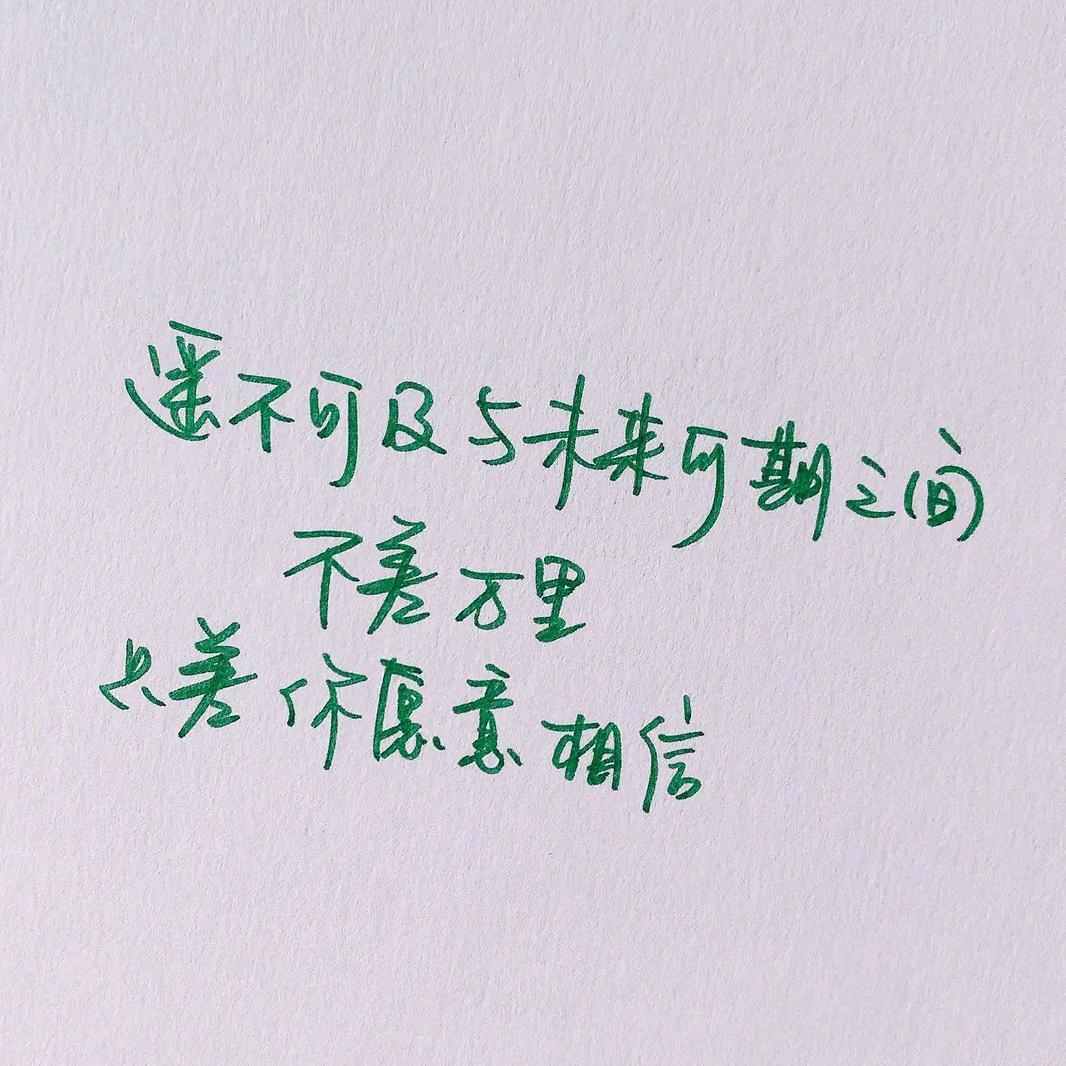 遥不可及与未来可期之间
不差万里
只差你愿意相信